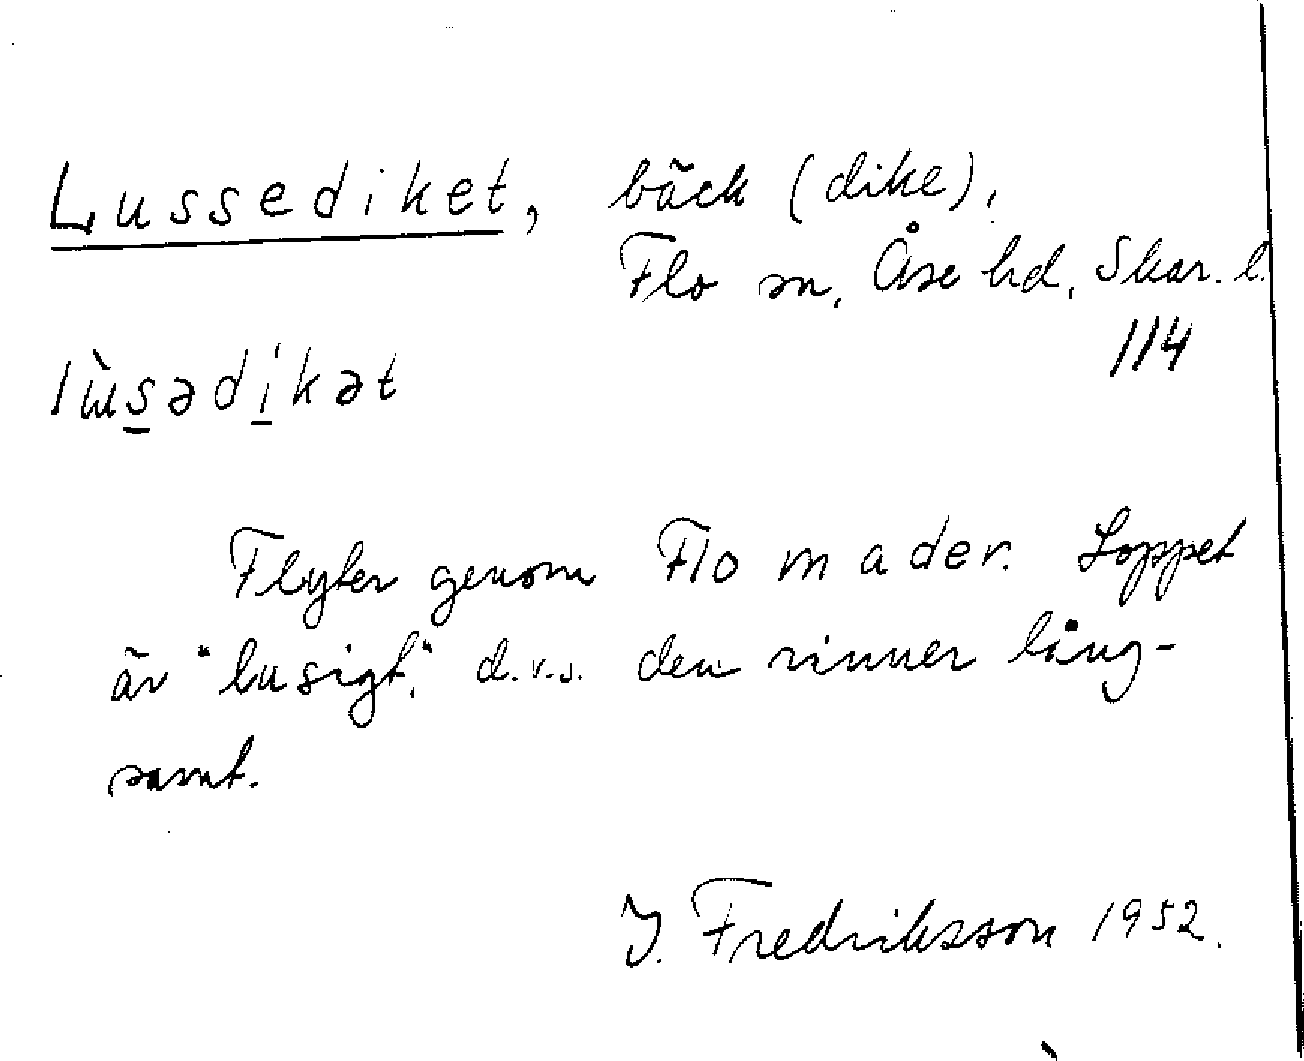 Lussediket, bäck (dike),
Flo sn, Åse hd, Skar. l.
114
lɯ̀s̲ədi̲kət
Flyter genom Flo mader. Loppet
är "lusigt," d.v.s. den rinner lång-
samt.
J. Fredriksson 1952.